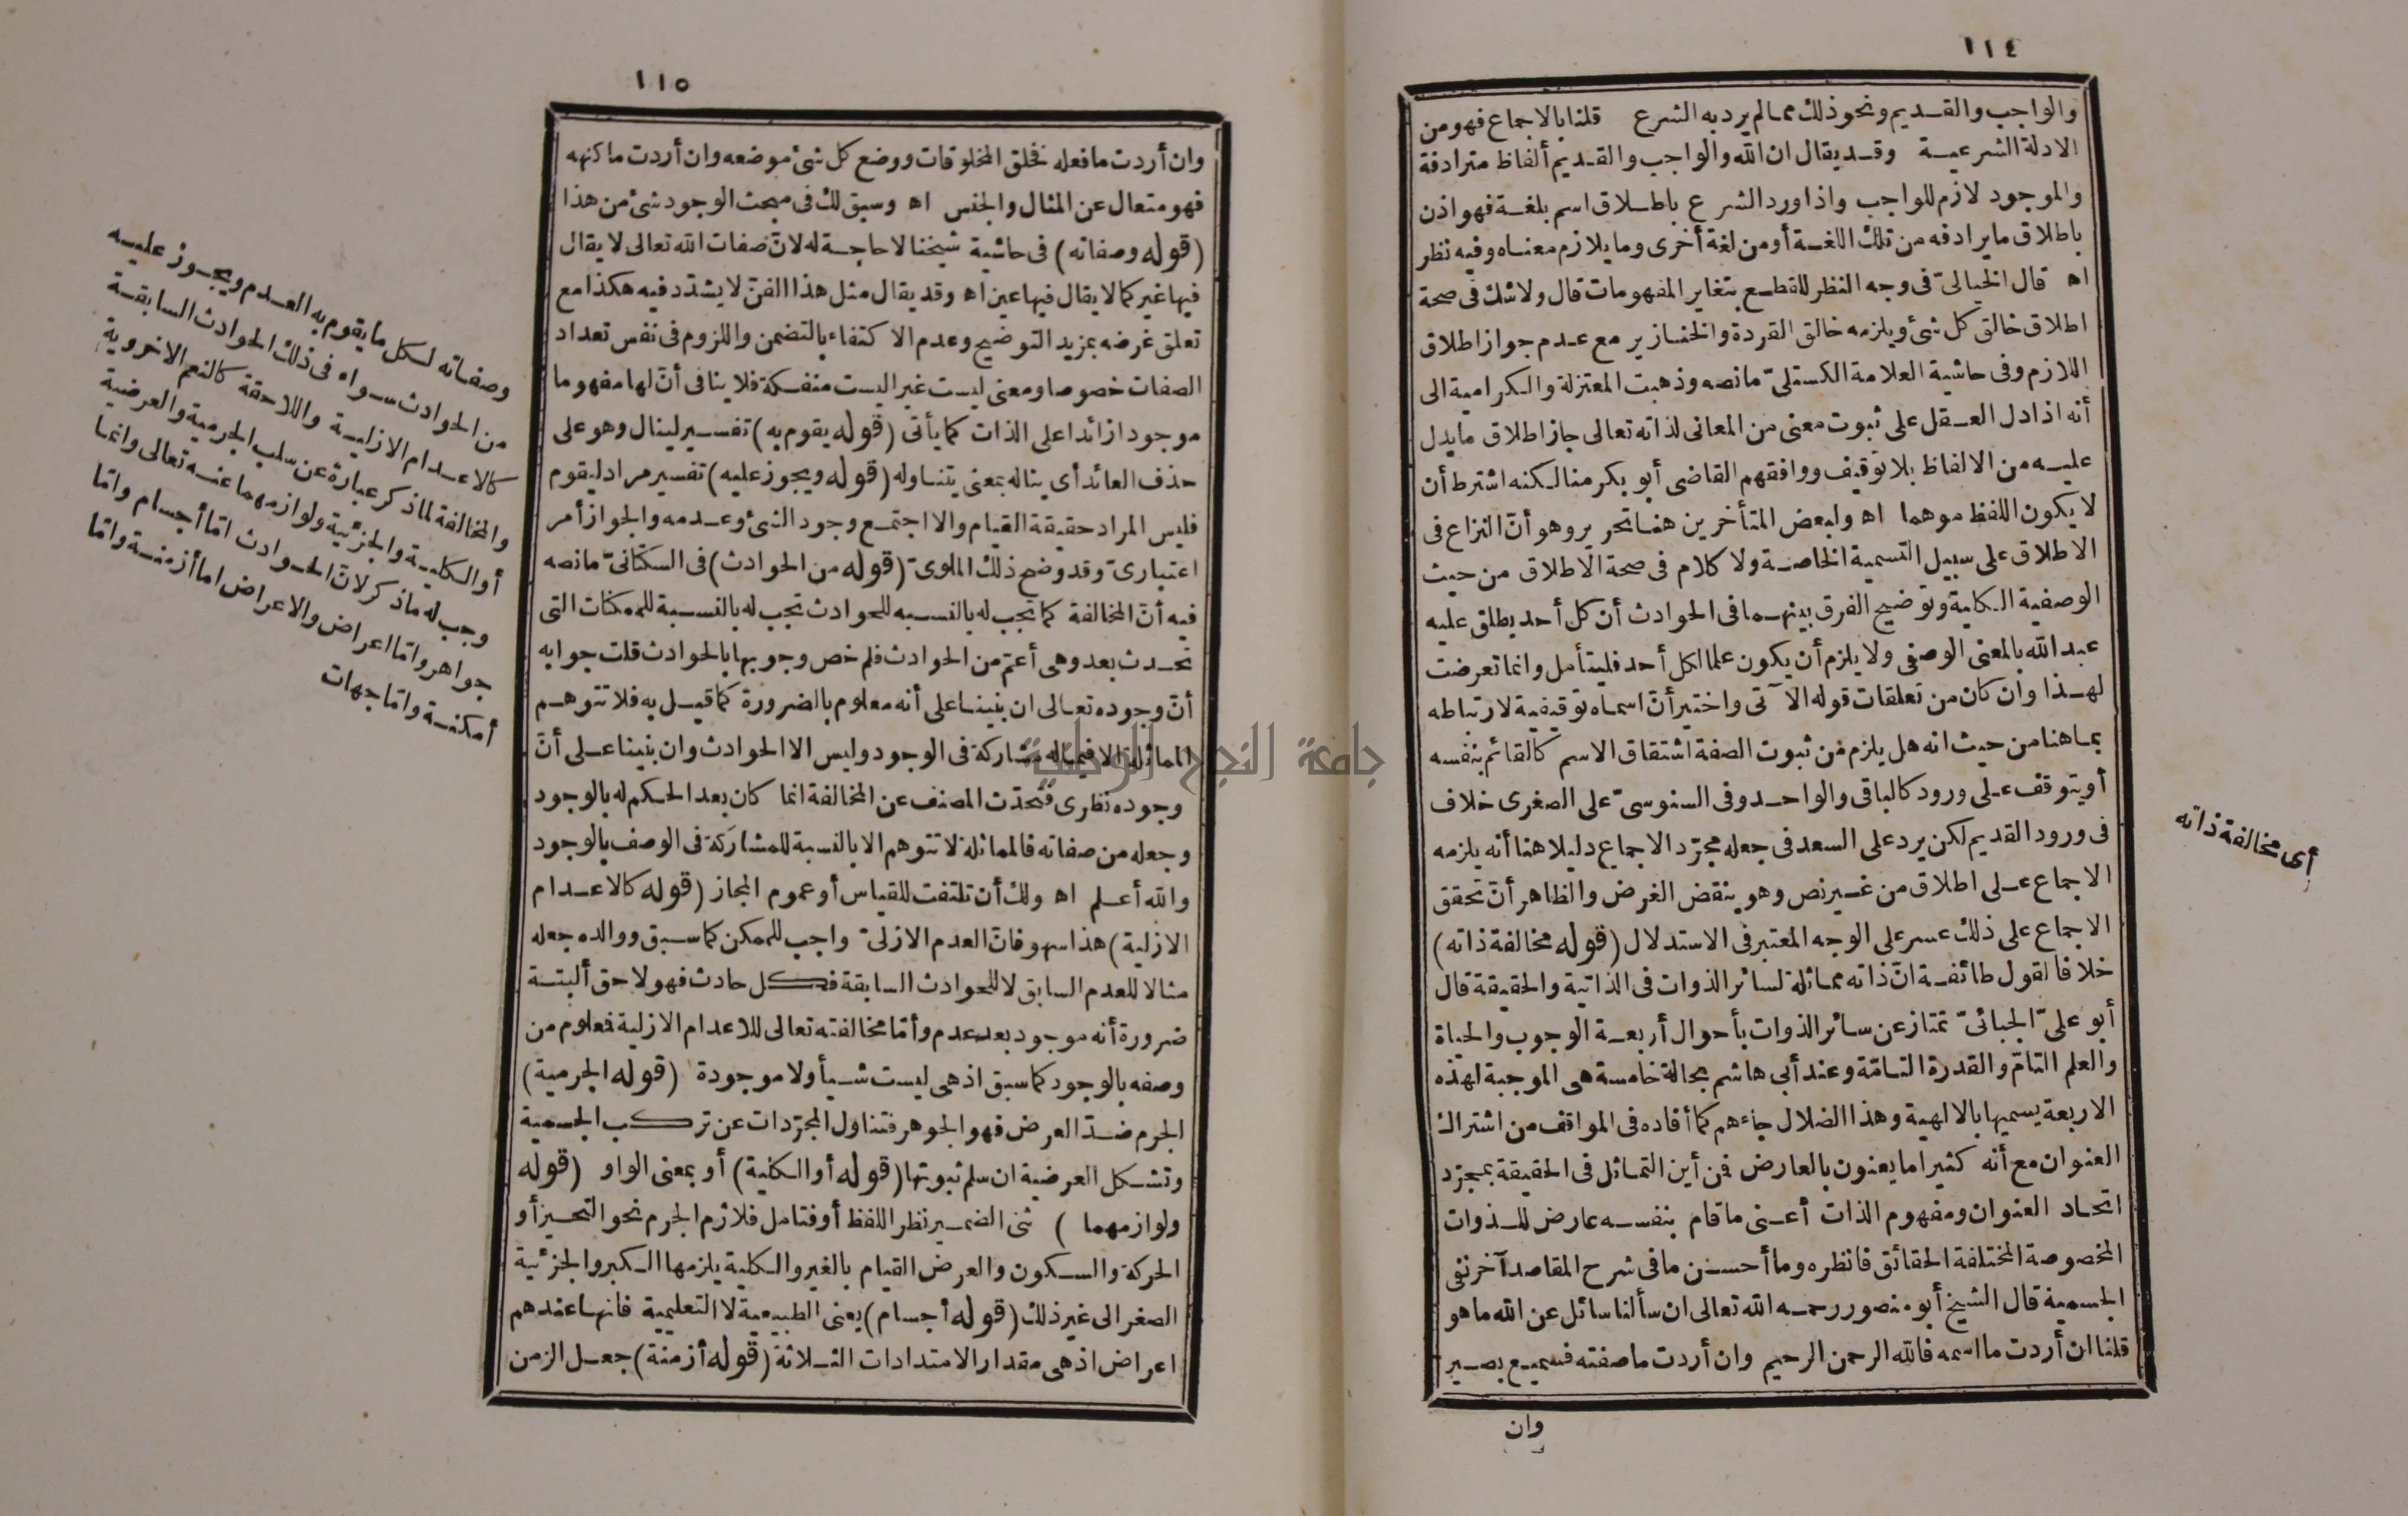 ١١٤
والواجب والقديم ونحو ذلك ممالم يرد به الشرع قلنا بالاجماع فهو من
الادلة الشرعية وقد يقال ان الله والواجب والقديم ألفاظ مترادفة
والموجود لازم للواجب واذا ورد الشرع باطلاق اسم بلغة فهو اذن
باطلاق ما يرادفه من تلك اللغة أو من لغة أخرى وما يلازم معناه وفيه نظر
اه قال الخيالىّ فى وجه النظر للقطع بتغاير المفهومات قال ولاشك فى صحة
اطلاق خالق كل شئ ويلزمه خالق القردة والخنازير مع عدم جواز اطلاق
اللازم وفى حاشية العلامة الكستلىّ مانصه وذهبت المعتزلة والكرامية الى
أنه اذا دل العقل على ثبوت معنى من المعانى لذاته تعالى جاز اطلاق ما يدل
عليه من الالفاظ بلا توقيف ووافقهم القاضى أبو بكر منا لكنه اشترط أن
لا يكون اللفظ موهما اه ولبعض المتأخرين هنا تحرير وهو أنّ النزاع فى
الاطلاق على سبيل التسمية الخاصة ولا كلام فى صحة الاطلاق من حيث
الوصفية الكلية وتوضيح الفرق بينهما فى الحوادث أن كل أحد يطلق عليه
عبد الله بالمعنى الوصفى ولا يلزم أن يكون علما لكل أحد فليتأمل وانما تعرضت
لهذا وان كان من تعلقات قوله الآتى واختير أنّ اسماه توقيفية لارتباطه
بما هنا من حيث انه هل يلزم من ثبوت الصفة اشتقاق الاسم كالقائم بنفسه
أو يتوقف على ورود كالباقى والواحد وفى السنوسىّ على الصغرى خلاف
فى ورود القديم لكن يرد على السعد فى جعله مجرّد الاجماع دليلا هنا أنه يلزمه
الاجماع على اطلاق من غير نص وهو ينقض الغرض والظاهر أنّ تحقق
الاجماع على ذلك عسر على الوجه المعتبر فى الاستدلال (قوله مخالفة ذاته)
خلافا لقول طائفة انّ ذاته مماثلة لسائر الذوات فى الذاتية والحقيقة قال
أبو علىّ الجبائىّ تمتاز عن سائر الذوات بأحوال أربعة الوجوب والحياة
والعلم التامّ والقدرة التامّة وعند أبى هاشم بحالة خامسة هى الموجبة لهذه
الاربعة يسميها بالالهية وهذا الضلال جاءهم كما أفاده فى المواقف من اشتراك
العنوان مع أنه كثيرا ما يعنون بالعارض فمن أين التماثل فى الحقيقة بمجرّد
اتحاد العنوان ومفهوم الذات أعنى ماقام بنفسه عارض للذوات
المخصوصة المختلفة الحقائق فانظره وما أحسن ما فى شرح المقاصد آخر نفى
الجسمية قال الشيخ أبو منصور رحمه الله تعالى ان سألنا سائل عن الله ما هو
قلنا ان أردت ما اسمه فالله الرحمن الرحيم وان أردت ما صفته فسميع بصير
وان
أى مخالفة ذاته
١١٥
وان أردت ما فعله فخلق المخلوقات ووضع كل شئ موضعه وان أردت ما كنهه
فهو متعال عن المثال والجنس اه وسبق لك فى مبحث الوجود شئ من هذا
(قوله وصفاته) فى حاشية شيخنا لا حاجة له لانّ صفات الله تعالى لا يقال
فيها غير كما لا يقال فيها عين اه وقد يقال مثل هذا الفنّ لا يشدّد فيه هكذا مع
تعلق غرضه بمزيد التوضيح وعدم الاكتفاء بالتضمن واللزوم فى نفس تعداد
الصفات خصوصا ومعنى ليست غيرا ليست منفكة فلا ينافى أنّ لها مفهوما
موجودا زائدا على الذات كما يأتى (قوله يقوم به) تفسير لينال وهو على
حذف العائد أى يناله بمعنى يتناوله (قوله ويجوز عليه) تفسير مراد ليقوم
فليس المراد حقيقة القيام والا اجتمع وجود الشئ وعدمه والجواز أمر
اعتبارىّ وقد وضح ذلك الملوىّ (قوله من الحوادث) فى السكتانىّ مانصه
فيه أنّ المخالفة كما تجب له بالنسبه للحوادث تجب له بالنسبة للممكنات التى
تحدث بعد وهى أعمّ من الحوادث فلم خص وجوبها بالحوادث قلت جوابه
أنّ وجوده تعالى ان بنينا على أنه معلوم بالضرورة كما قيل به فلا تتوهم
المماثلة الا فيما له مشاركة فى الوجود وليس الا الحوادث وان بنينا على أنّ
وجوده نظرى فتحدّث المصنف عن المخالفة انما كان بعد الحكم له بالوجود
وجعله من صفاته فالمماثلة لا تتوهم الا بالنسبة للمشاركة فى الوصف بالوجود
والله أعلم اه ولك أن تلتفت للقياس أو عموم المجاز (قوله كالاعدام
الازلية) هذا سهو فانّ العدم الازلىّ واجب للممكن كما سبق ووالده جعله
مثالا للعدم السابق لا للحوادث السابقة فكل حادث فهو لاحق ألبتة
ضرورة أنه موجود بعد عدم وأمّا مخالفته تعالى للاعدام الازلية فمعلوم من
وصفه بالوجود كما سبق اذ هى ليست شيأ ولا موجودة (قوله الجرمية)
الجرم ضدّ العرض فهو الجوهر فتناول المجرّدات عن تركب الجسمية
وتشكل العرضية ان سلم ثبوتها (قوله أو الكلية) أو بمعنى الواو (قوله
ولوازمهما) ثنى الضمير نظرا للفظ أو فتامل فلازم الجرم نحو التحيز أو
الحركة والسكون والعرض القيام بالغير والكلية يلزمها الكبر والجزئية
الصغر الى غير ذلك (قوله أجسام) يعنى الطبيعية لا التعليمية فانها عندهم
اعراض اذ هى مقدار الامتدادات الثلاثة (قوله أزمنة) جعل الزمن
وصفاته لكل ما يقوم به العدم ويجوز عليه
من الحوادث سواه فى ذلك الحوادث السابقة
كالاعدام الازلية واللاحقة كالنعم الاخروية
والمخالفة لماذكر عبارة عن سلب الجرمية والعرضية
أو الكلية والجزئية ولوازمهما عنه تعالى وانما
وجب له ماذكر لانّ الحوادث امّا أجسام وامّا
جواهر وامّا اعراض والاعراض اما أزمنسة وامّا
أمكنة وامّا جهات
جامعة النجاح الوطنية